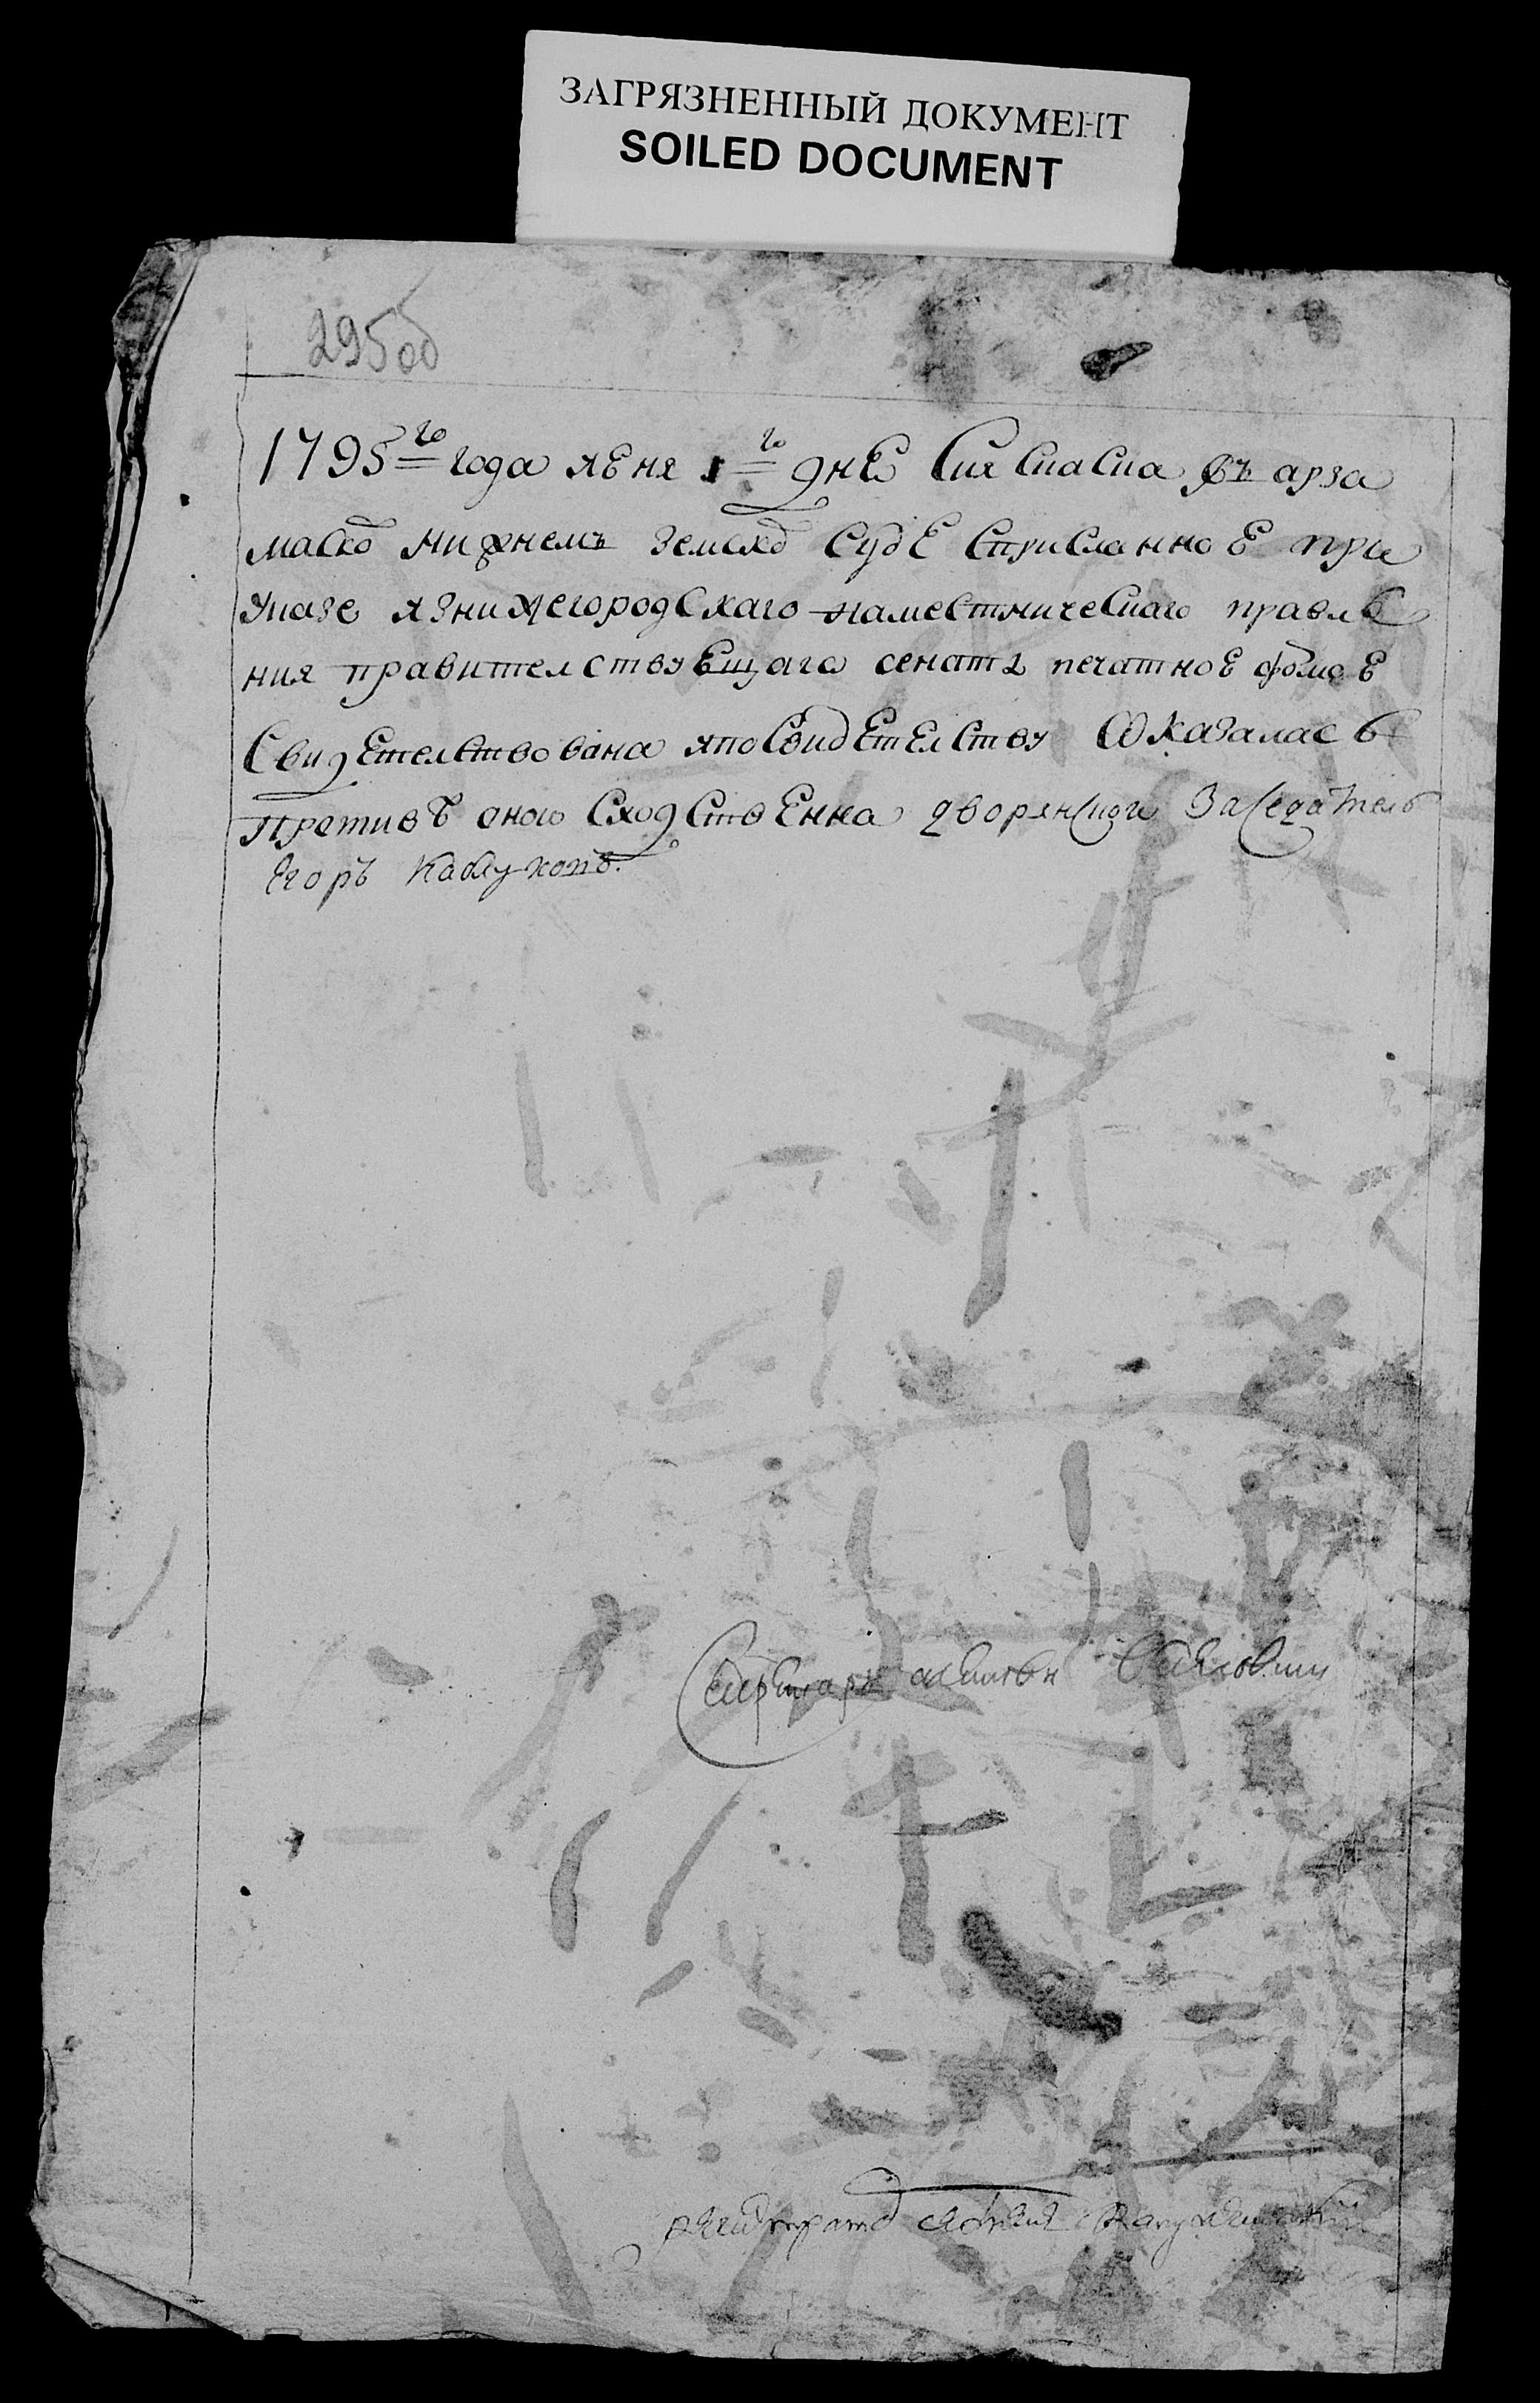 ЗАГРЯЗНЕННЫЙ ДОКУМЕНТ
SOILED DOCUMENT
295об
1795го года июня 1го дня Сия Скаска въ арза
маско нижнемъ земско Суде Сприсланное при
указе изнижегородскаго наместническаго правле
ния правителствующаго сената печатное формое
Свидетельствована ипосвидетелству Оказалась
Противъ оной Сходственна дворянской Заседатель
Егоръ Каблуковъ.
Секретарь
регистраторъ